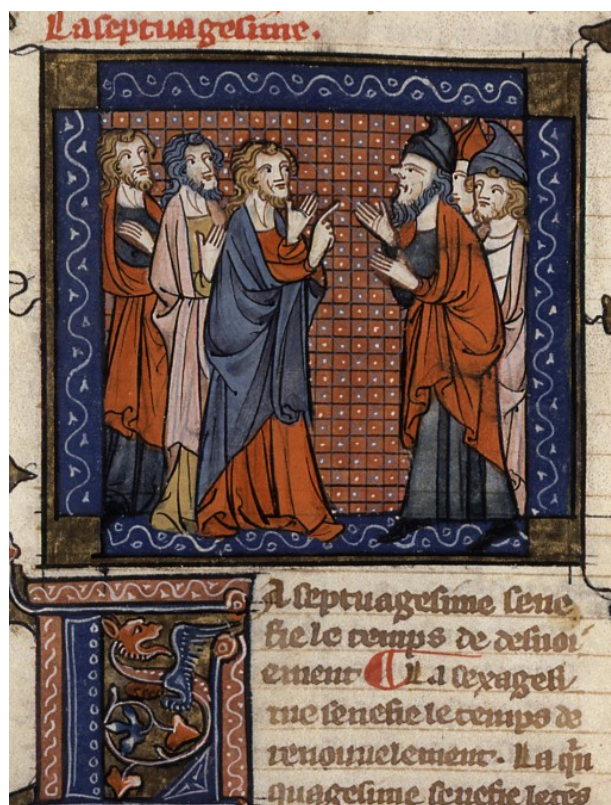 La septuagesime.
La septuagesime sene
fie le temps de desuoi
ement La sexagesi
me senefie le temps de
renouuelement. La qin
quagesime senefie le tẽs